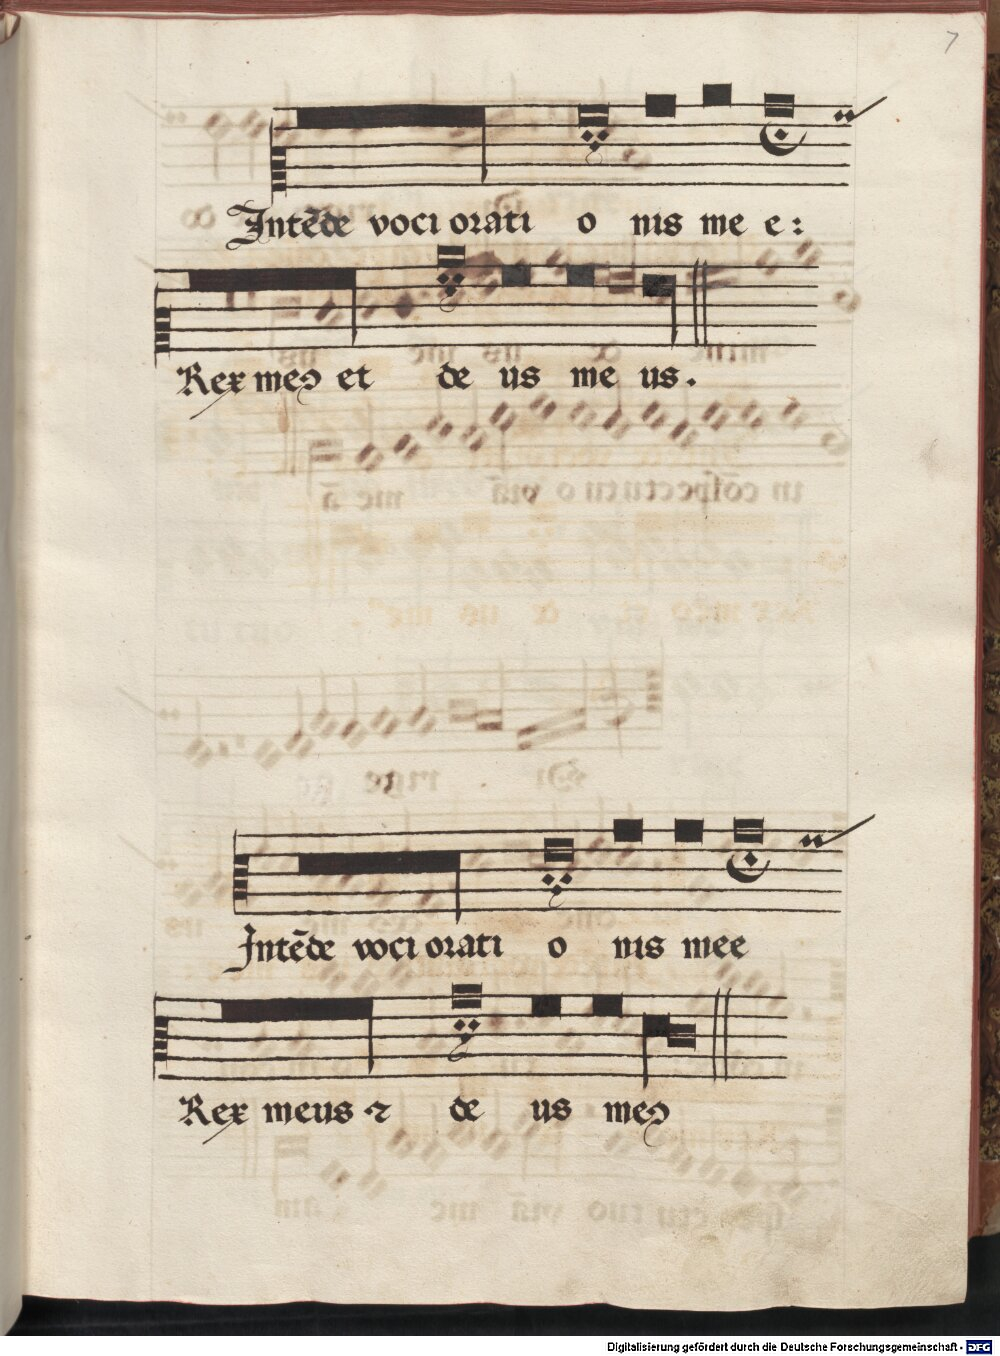 7
Intēde voci orati o nis me e:
Rex meꝯ et de us me us.
Intēde voci orati o nis mee
Rex meus ⁊ de us meꝯ
Digitalisierung gefördert durch die Deutsche Forschungsgemeinschaft - DFG